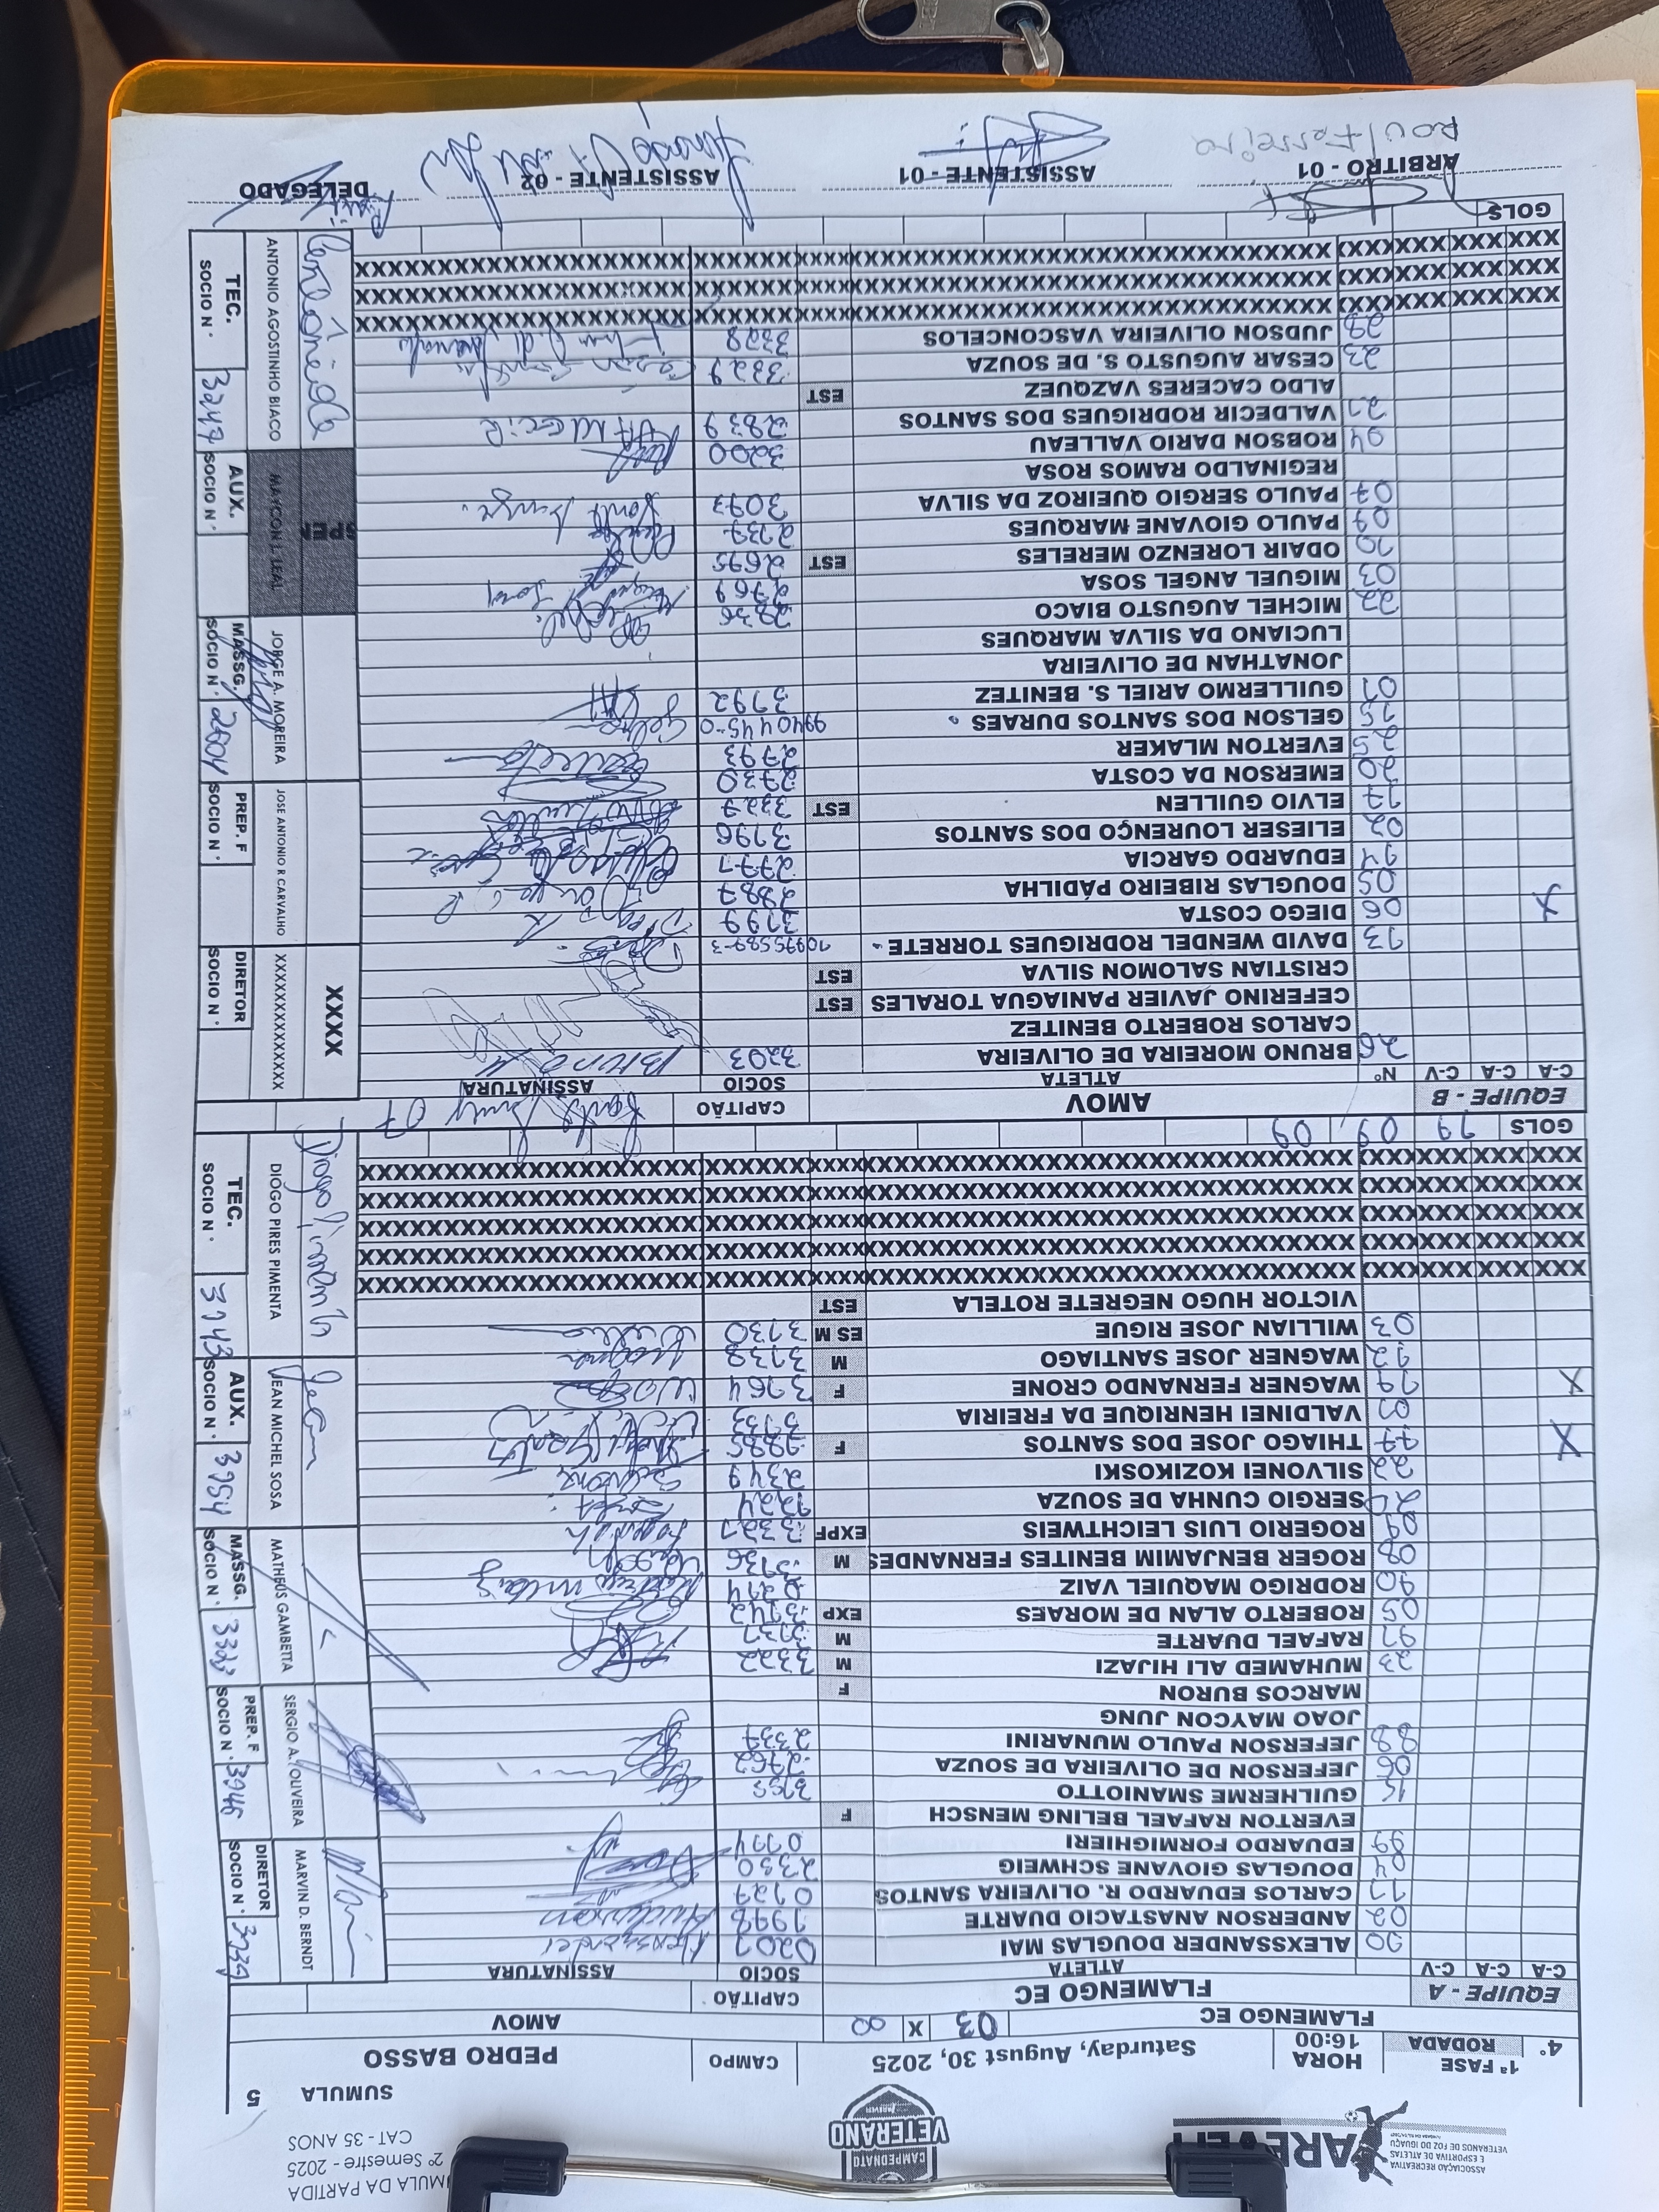 ASSOCIAÇÃO RECREATIVA
E ESPORTIVA DE ATLETAS
VETERANOS DE FOZ DO IGUAÇU
CAMPEONATO
VETERANO
AREVEFI
MULA DA PARTIDA
2º Semestre - 2025
CAT - 35 ANOS
SUMULA 5
1ª FASE
4° RODADA
HORA
16:00
Saturday, August 30, 2025
CAMPO
PEDRO BASSO
FLAMENGO EC 03 X 00 AMOV
EQUIPE - A FLAMENGO EC CAPITÃO
C-A C-A C-V ATLETA SOCIO ASSINATURA
00 ALEXSSANDER DOUGLAS MAI 0207 Alexssander
02 ANDERSON ANASTACIO DUARTE 1998 Anderson
11 CARLOS EDUARDO R. OLIVEIRA SANTOS 0127
04 DOUGLAS GIOVANE SCHWEIG 2330
99 EDUARDO FORMIGHIERI 0774
EVERTON RAFAEL BELING MENSCH F
15 GUILHERME SMANIOTTO 3155
06 JEFERSON DE OLIVEIRA DE SOUZA 2762
88 JEFERSON PAULO MUNARINI 2337
JOAO MAYCON JUNG
MARCOS BURON F
23 MUHAMED ALI HIJAZI M 3322
97 RAFAEL DUARTE M 3137
05 ROBERTO ALAN DE MORAES EXP 3142
90 RODRIGO MAQUIEL VAIZ 0294
08 ROGER BENJAMIM BENITES FERNANDES M 3136
09 ROGERIO LUIS LEICHTWEIS EXPF 3321
20 SERGIO CUNHA DE SOUZA 1224
22 SILVONEI KOZIKOSKI 2349
77 THIAGO JOSE DOS SANTOS F 1885
07 VALDINEI HENRIQUE DA FREIRIA 3133
X 19 WAGNER FERNANDO CRONE F 3164
12 WAGNER JOSE SANTIAGO M 3138 Wagner
03 WILLIAN JOSE RIGUE ES M 3130
VICTOR HUGO NEGRETE ROTELA EST
GOLS 19 09 09
DIRETOR SOCIO Nº 3139 MARVIN D. BERNDT
PREP. F SOCIO Nº 3146 SERGIO A. OLIVEIRA
MASSG. SOCIO Nº 3323 MATHEUS GAMBETTA
AUX. SOCIO Nº 3154 JEAN MICHEL SOSA Jean
TEC. SOCIO Nº 3143 DIOGO PIRES PIMENTA Diogo Pimenta
EQUIPE - B AMOV CAPITÃO 07
C-A C-A C-V Nº ATLETA SOCIO ASSINATURA
26 BRUNO MOREIRA DE OLIVEIRA 3203 Bruno
CARLOS ROBERTO BENITEZ
CEFERINO JAVIER PANIAGUA TORALES EST
CRISTIAN SALOMON SILVA EST
13 DAVID WENDEL RODRIGUES TORRETE 10975589-3
X 06 DIEGO COSTA 3199
05 DOUGLAS RIBEIRO PÁDILHA 2887
14 EDUARDO GARCIA 2771
02 ELIESER LOURENÇO DOS SANTOS 3196
17 ELVIO GUILLEN EST 3327
20 EMERSON DA COSTA 2730
25 EVERTON MLAKER 2793
15 GELSON DOS SANTOS DURAES 9940445-0 Gelson
01 GUILLERMO ARIEL S. BENITEZ 3192
JONATHAN DE OLIVEIRA
LUCIANO DA SILVA MARQUES
22 MICHEL AUGUSTO BIACO 2736 Michel
03 MIGUEL ANGEL SOSA 2769 Miguel Sosa
10 ODAIR LORENZO MERELES EST 2695
09 PAULO GIOVANE MARQUES 2737 Paulo
07 PAULO SERGIO QUEIROZ DA SILVA 3093
REGINALDO RAMOS ROSA
04 ROBSON DARIO VALLEAU 3200
21 VALDECIR RODRIGUES DOS SANTOS 2839 VALDECIR
ALDO CACERES VAZQUEZ EST
23 CESAR AUGUSTO S. DE SOUZA 3329
28 JUDSON OLIVEIRA VASCONCELOS 3328
GOLS
DIRETOR SOCIO Nº XXXXXXXXXXXXXX XXXX
PREP. F SOCIO Nº JOSE ANTONIO R CARVALHO
MASSG. SOCIO Nº 2004 JORGE A. MOREIRA
AUX. SOCIO Nº MAYCON J. LEAL
TEC. SOCIO Nº 3247 ANTONIO AGOSTINHO BIACO
ARBITRO - 01
ASSISTENTE - 01
ASSISTENTE - 02
DELEGADO